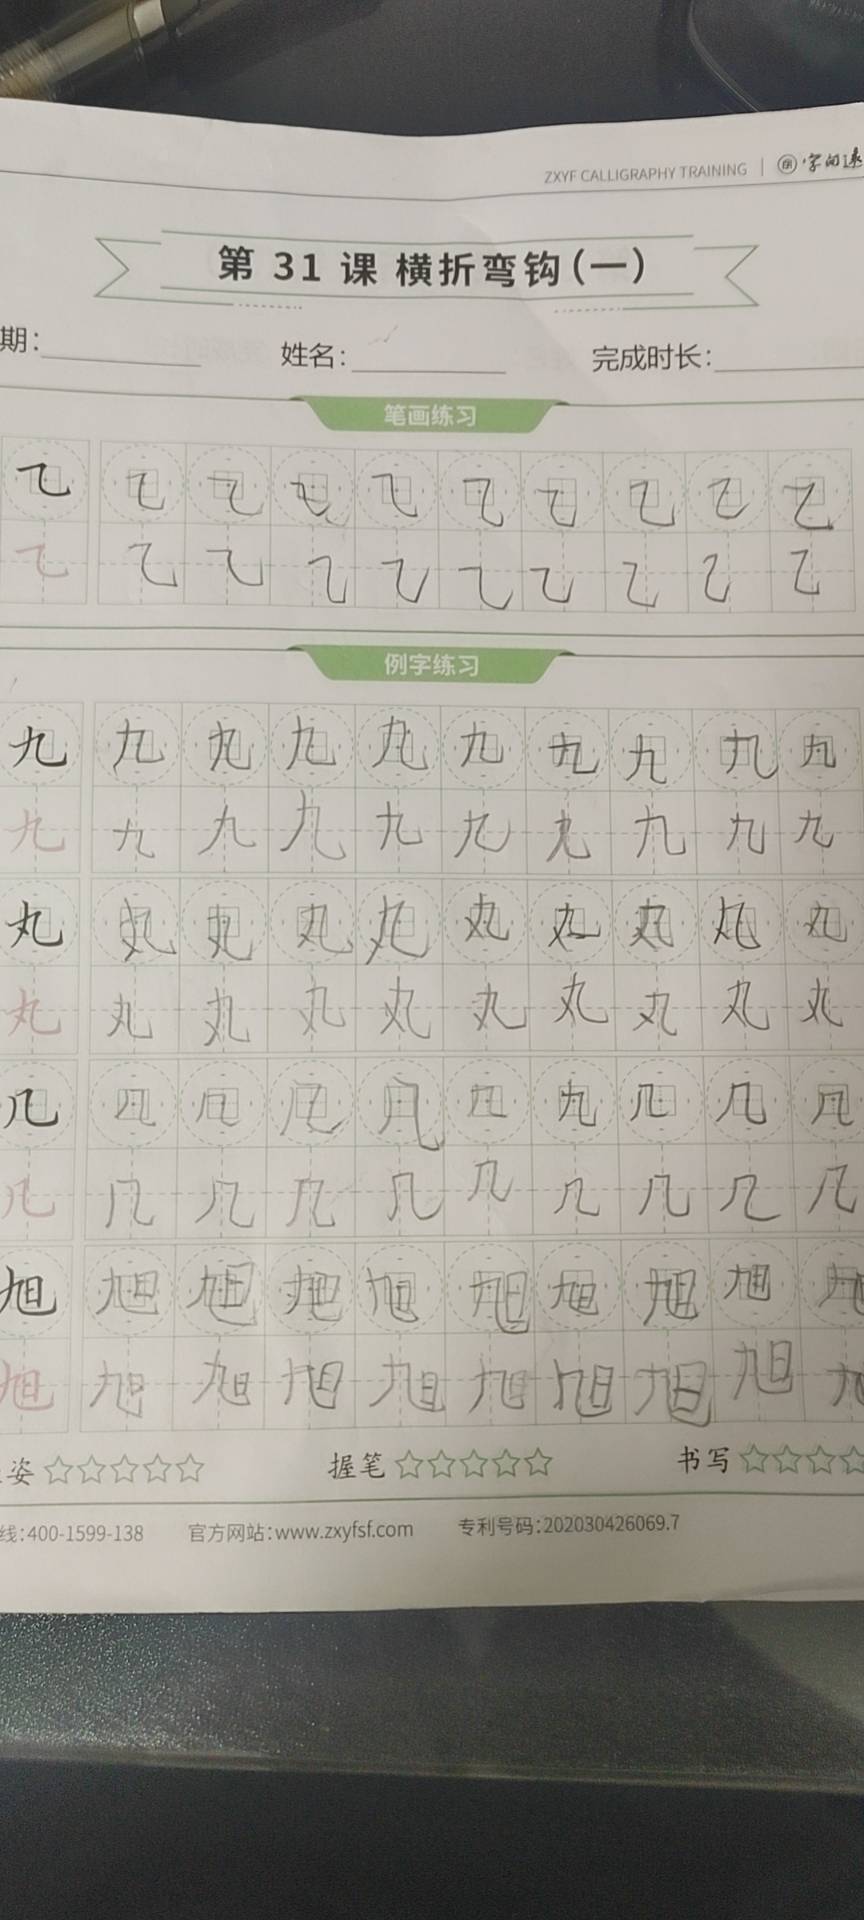 ZXYF CALLIGRAPHY TRAINING
第 31 课 横折弯钩(一)
期: 姓名: 完成时长:
笔画练习
例字练习
九 九 九 九 九 九 九 九 九 九
九 九 九 九 九 九 九 九 九 九
丸 丸 丸 丸 丸 丸 丸 丸 丸 丸
丸 丸 丸 丸 丸 丸 丸 丸 丸 丸
几 几 几 几 几 几 九 几 几 几
几 几 几 几 几 几 几 几 几 几
旭 旭 旭 旭 旭 旭 旭 旭 旭 旭
旭 旭 旭 旭 旭 旭 旭 旭 旭
姿 握笔 书写
线:400-1599-138 官方网站:www.zxyfsf.com 专利号码:202030426069.7